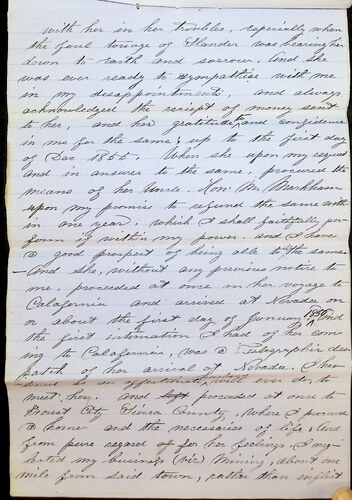 with her in her troubles, especially when
the foul tounge of Slander was bearing her
down to earth and sorrow. And she
was ever ready to sympathise with me
in my disappointments, and always
acknowledged the reciept of money sent
to her, and her gratitude, and confidence
in me for the same, up to the first day
of Dec 1855. When she upon my request
and in answer to the same, procured the
means of her Uncle. Hon. M. Markham
upon my promise to refund the same with
in one year, which I shall faithfully per
form if within my power, and I have
a good prospect of being able to the same
- And she, without any previous notice to
me, proceeded at once on her voyage to
Calafornia and arrived at Nevada on
or about the first day of January 1856, and
the first intimation I had of her com
ing to Calafornia, was a Telegraphic des
patch of her arrival at Nevada. I
meet her, and proceeded at once to
Forest City Sierra County, where I procured
a home and the necessaries of life, and
from pure regard of for her feelings I neg
lected my business (viz) Mining, about one
mile from said town, rather than inflict